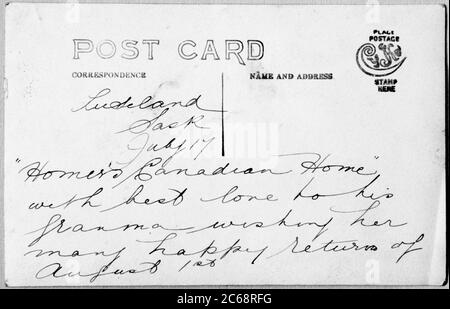 POST CARD
CORRESPONDENCE
NAME AND ADDRESS
PLACE
POSTAGE
STAMP
HERE
Luseland
Sask
July 17
"Homer's Canadian Home"
with best love to his
granma wishing her
many happy returns of
August 1st
alamy
Image ID: 2C68RFG
www.alamy.com